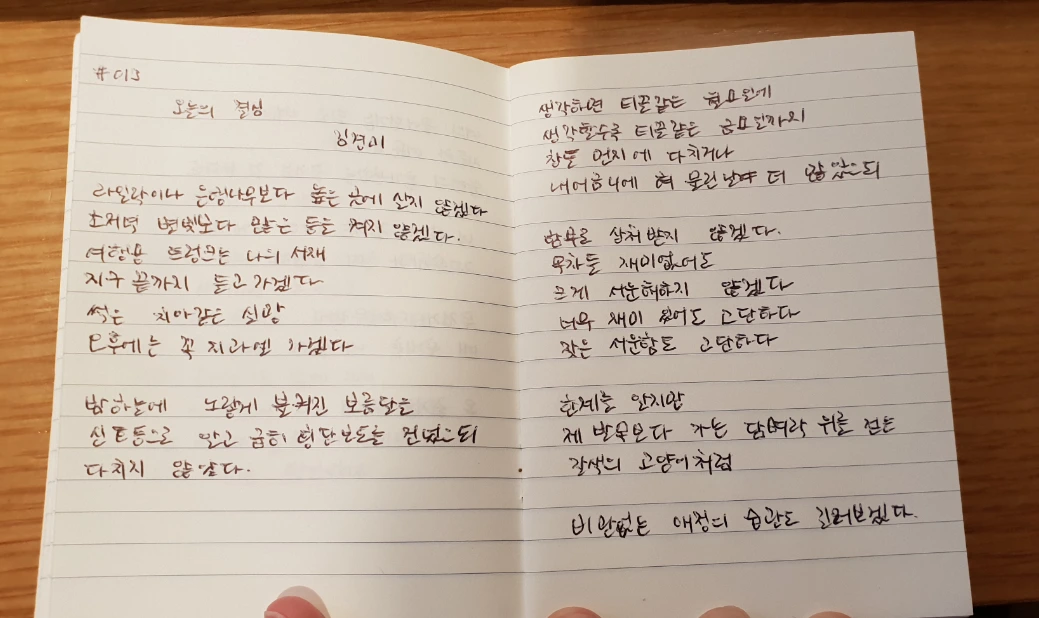 #013
오늘의 결심
김경미
라일락이나 은행나무보다 높은 곳에 살지 않겠다
초저녁 별빛보다 많은 등을 켜지 않겠다.
여행용 트렁크는 나의 서재
지구 끝까지 들고 가겠다
썩은 치아같은 실망
오후에는 꼭 치과엘 가겠다
밤하늘에 노랗게 불켜진 보름달을
신호등으로 알고 급히 횡단보도를 건넜으되
다치지 않았다.
생각하면 티끌같은 월요일에
생각할수록 티끌같은 금요일까지
찬 먼지에 다치거나
내 어금니에 혀 물린 날 더 많았으되
함부로 상처받지 않겠다.
목차들 재미없어도
크게 서운해하지 않겠다
너무 재미 있어도 고단하다
잦은 서운함도 고단하다
한계를 알지만
제 발목보다 가는 담벼락 위를 걷는
갈색의 고양이처럼
비관없는 애정의 습관도 길러보겠다.